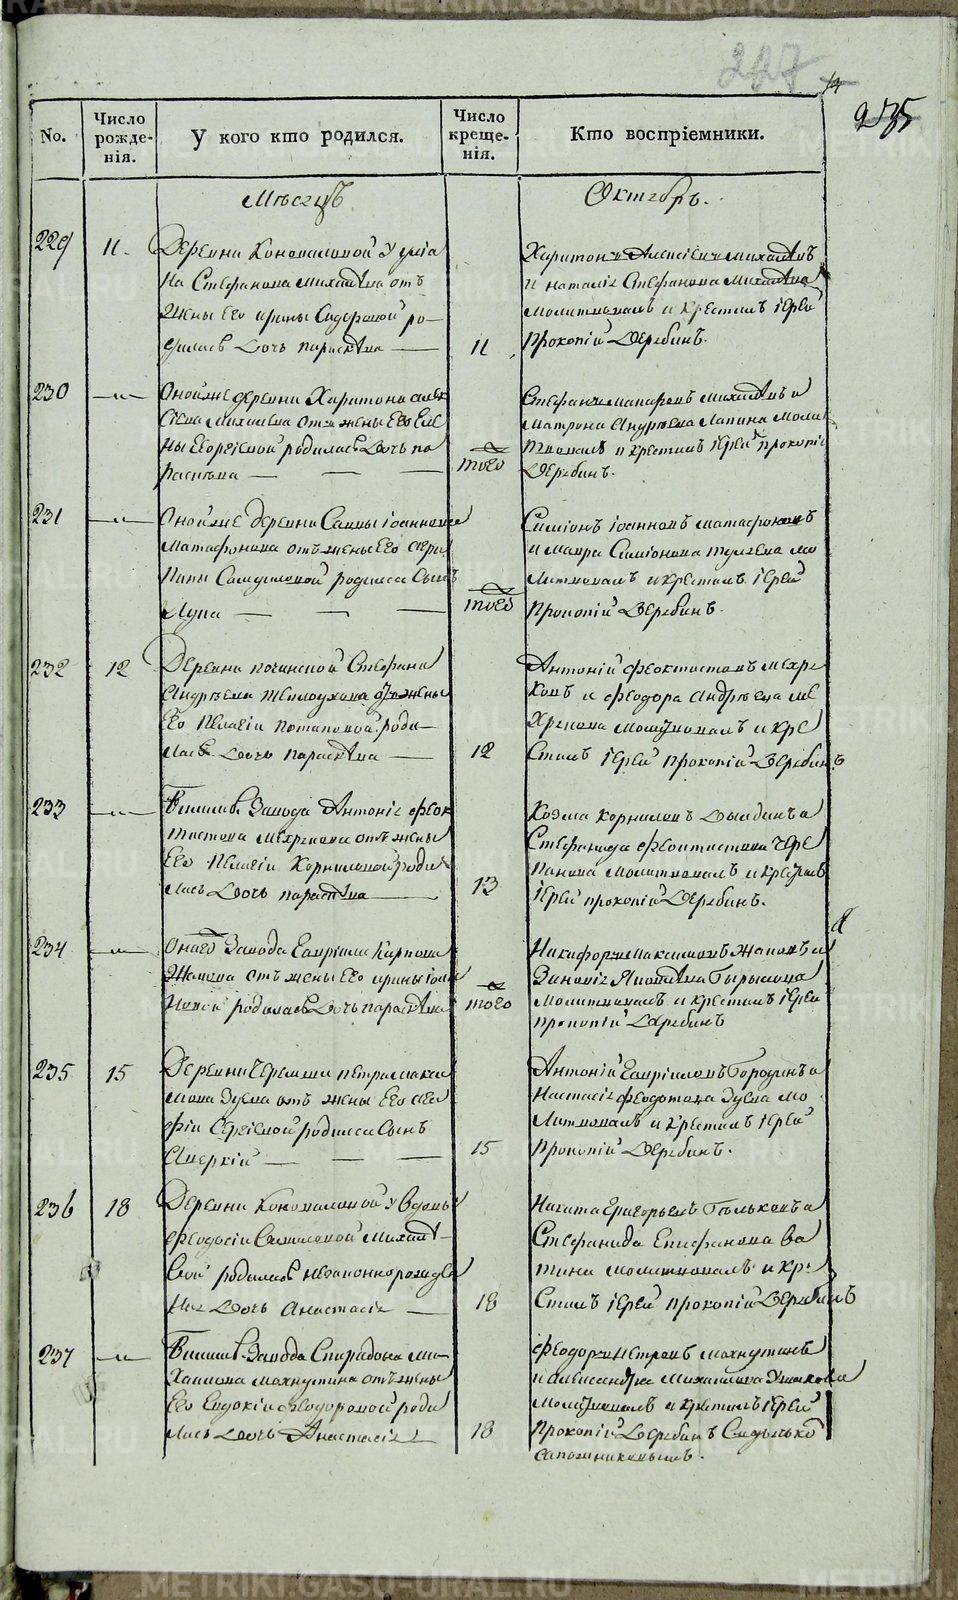 235
No.
Число рожде-нія.
У кого кто родился.
Число креще-нія.
Кто воспріемники.
Мѣсецъ
Октебръ.
229
11.
Деревни Коноваловой у
на Стефанова Михалѣва отъ
жены Его Ирины Сидоровой ро-
дилась Дочь Параскѣва
11
Харитонъ Алексіевъ Михалѣвъ
и Наталіе Стефанова Михалѣва
молитвовалъ и крестилъ іерей
Прокопій Дерябинъ.
230
Онойже деревни Харитона Алек
сіева Михалева отъ жены Его Еле
ны Егоріевой родилась Дочь Па
раскѣва
того
Стефанъ Макаровъ Михалѣвъ и
Матрона Андрѣева Лапина моли
твовалъ и крестилъ іерей Прокопіи
Дерябинъ.
231
Онойже деревни Саввы Іоаннова
Матафонова отъ жены Его
Самуиловой родился Сынъ
Лупа
того
Симіонъ Іоанновъ Матафоновъ
и Мавра Симіонова мо
литвовалъ и крестилъ іерей
Прокопій Дерябинъ.
232
12
Деревни Починской Стефана
Андрѣева отъ жены
Его Пелагіи Потаповой роди-
лась Дочь Параскѣва
12
Антоній Феоктистовъ Мехре
ковъ и Феодора Андрѣева
молитвовалъ и кре
стилъ іерей Прокопій Дерябинъ
233
Завода Антоніе Феок
тистова Мехрекова отъ жены
Его Пелагіи Корниловой роди
лась Дочь Параскѣва
13
Козма Корниловъ и
Стефанида Феоктистова Чере
панова молитвовалъ и крестилъ
іерей Прокопій Дерябинъ.
234
Онаго Завода Гавріила Карпова
отъ жены Его Ирины
родилась Дочь Параскѣва
того
Никифоръ Максимовъ и
Зиновіе
молитвовалъ и крестилъ іерей
Прокопій Дерябинъ
235
15
Деревни Черемши Петра Макси
мова Зуева отъ жены Его Ага
фіи Сергіевой родился Сынъ
Аверкій
15
Антоній Гавріиловъ Бородинъ и
Настасіе Феодотова Зуева мо
литвовалъ и крестилъ іерей
Прокопій Дерябинъ.
236
18
Деревни Коноваловой у вдовы
Феодосіи Михалѣ-
вой родилась незаконнорожде
на Дочь Анастасіе
18
Никита Григорьевъ и
Стефанида Епифанова Ва
тина молитвовалъ и кре
стилъ іерей Прокопій Дерябинъ
237
Завода Спиридона Ми-
хаилова Махнутина отъ жены
Его Евдокіи Феодоровой роди
лась Дочь Анастасіе
18
Феодоръ Петровъ Махнутинъ
и Александра Михайлова Ушакова
молитвовалъ и крестилъ іерей
Прокопій Дерябинъ Съ дьячкомъ
Сапожниковымъ.
METRIKI.GASO-URAL.RU